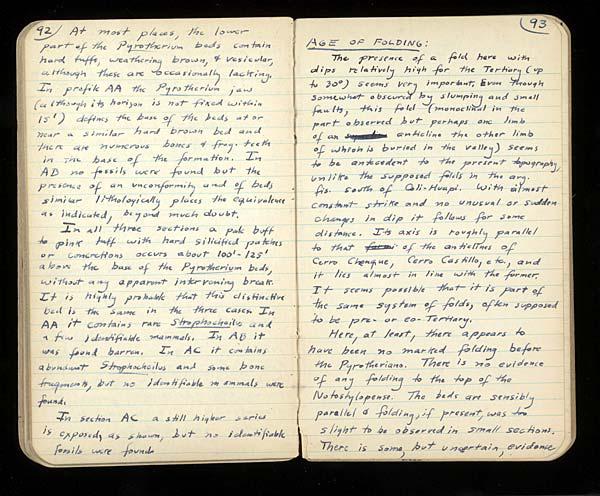 92
At most places, the lower
part of the Pyrotherium beds contain
hard tuffs, weathering brown, & vesicular,
although these are occasionally lacking.
In profile AA the Pyrotherium jaw
(although its horizon is not fixed within
15') defines the base of the beds at or
near a similar hard brown bed and
there are numerous bones & frog. teeth
in the base of the formation. In
AB no fossils were found but the
presence of an unconformity and of beds
similar lithologically places the equivalence
as indicated, beyond much doubt.
In all three sections a pale buff
to pink tuff with hard silicified patches
or concretions occurs about 100'-125'
above the base of the Pyrotherium beds,
without any apparent intervening break.
It is highly probable that this distinctive
bed is the same in the three cases. In
AA it contains rare Strophocheilus and
a few identifiable mammals. In AB it
was found barren. In AC it contains
abundant Strophocheilus and some bone
fragments, but no identifiable mammals were
found.
In section AC a still higher series
is exposed, as shown, but no identifiable
fossils were found.
93
AGE OF FOLDING:
The presence of a fold here with
dips relatively high for the Tertiary (up
to 30°) seems very important. Even though
somewhat obscured by slumping and small
faults, this fold (monoclinal in the
part observed but perhaps one limb
of an anticline the other limb
of which is buried in the valley) seems
to be antecedent to the present topography,
unlike the supposed folds in the arg.
fis. south of Coli-Huapi. With almost
constant strike and no unusual or sudden
changes in dip it follows for some
distance. Its axis is roughly parallel
to that of the anticlines of
Cerro Chenque, Cerro Castillo, etc., and
it lies almost in line with the former.
It seems possible that it is part of
the same system of folds, often supposed
to be pre- or eo-Tertiary.
Here, at least, there appears to
have been no marked folding before
the Pyrotheriano. There is no evidence
of any folding to the top of the
Notostylopense. The beds are sensibly
parallel & folding, if present, was too
slight to be observed in small sections.
There is some, but uncertain, evidence